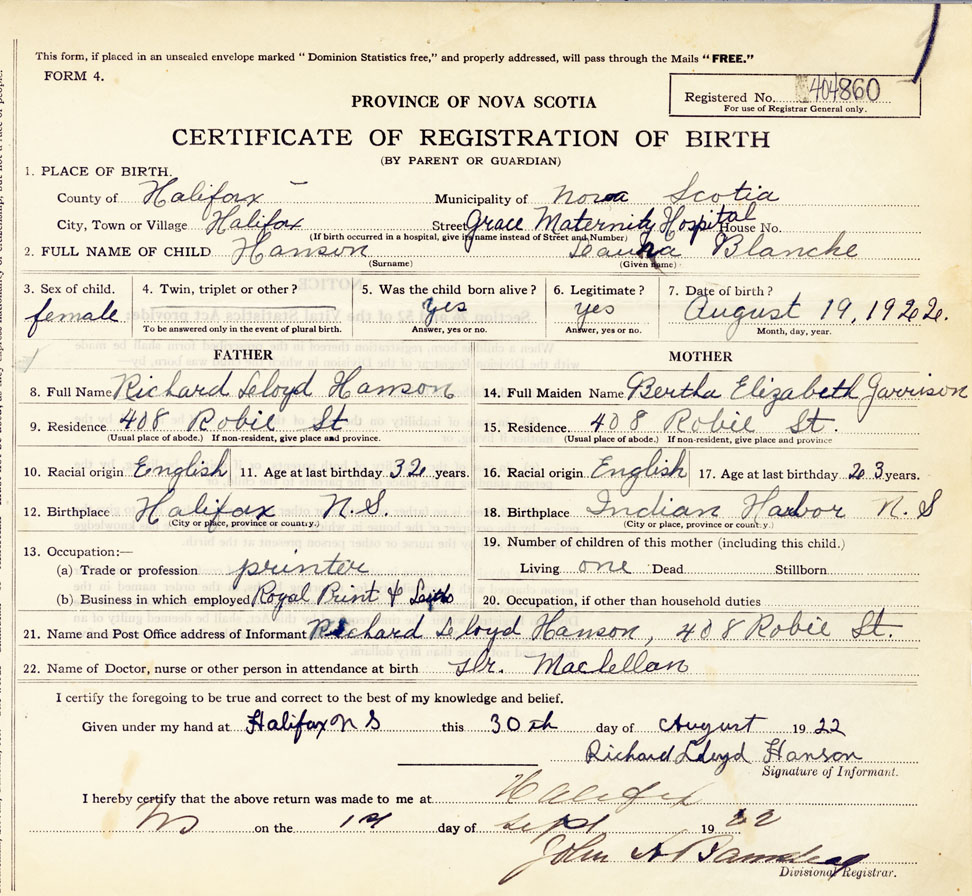 This form, if placed in an unsealed envelope marked " Dominion Statistics free," and properly addressed, will pass through the Mails "FREE."
FORM 4.
Registered No. 404860
For use of Registrar General only.
PROVINCE OF NOVA SCOTIA
CERTIFICATE OF REGISTRATION OF BIRTH
(BY PARENT OR GUARDIAN)
1. PLACE OF BIRTH.
County of Halifax Municipality of Nova Scotia
City, Town or Village Halifax Street Grace Maternity Hospital House No.
(If birth occurred in a hospital, give its name instead of Street and Number)
2. FULL NAME OF CHILD Hanson Blanche
(Surname) (Given name)
3. Sex of child. 4. Twin, triplet or other? 5. Was the child born alive? 6. Legitimate? 7. Date of birth?
female yes yes August 19, 1922.
To be answered only in the event of plural birth. Answer, yes or no. Answer, yes or no. Month, day, year.
FATHER MOTHER
8. Full Name Richard Lloyd Hanson 14. Full Maiden Name Bertha Elizabeth Garrison
9. Residence 408 Robie St 15. Residence. 408 Robie St.
(Usual place of abode.) If non-resident, give place and province. (Usual place of abode.) If non-resident, give place and province
10. Racial origin English 11. Age at last birthday 32 years. 16. Racial origin English 17. Age at last birthday 23 years.
12. Birthplace Halifax N.S. 18. Birthplace Indian Harbor N.S
(City or place, province or country.) (City or place, province or country.)
13. Occupation:— 19. Number of children of this mother (including this child.)
(a) Trade or profession printer Living one Dead Stillborn
(b) Business in which employed Royal Print & 20. Occupation, if other than household duties
21. Name and Post Office address of Informant Richard Lloyd Hanson, 408 Robie St.
22. Name of Doctor, nurse or other person in attendance at birth Dr. Maclellan
I certify the foregoing to be true and correct to the best of my knowledge and belief.
Given under my hand at Halifax N S this 30th day of August 1922
Richard Lloyd Hanson
Signature of Informant.
I hereby certify that the above return was made to me at Halifax
NS on the 1st day of Sept 1922
John A
Divisional Registrar.